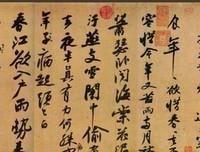 食年〻欲惜春〻去
容惜今年又苦雨兩月
蕭瑟卧聞海棠花泥
汙燕支雪闇中偷
去夜半真有力何殊
年病起頭已白
春江欲入戶雨勢來